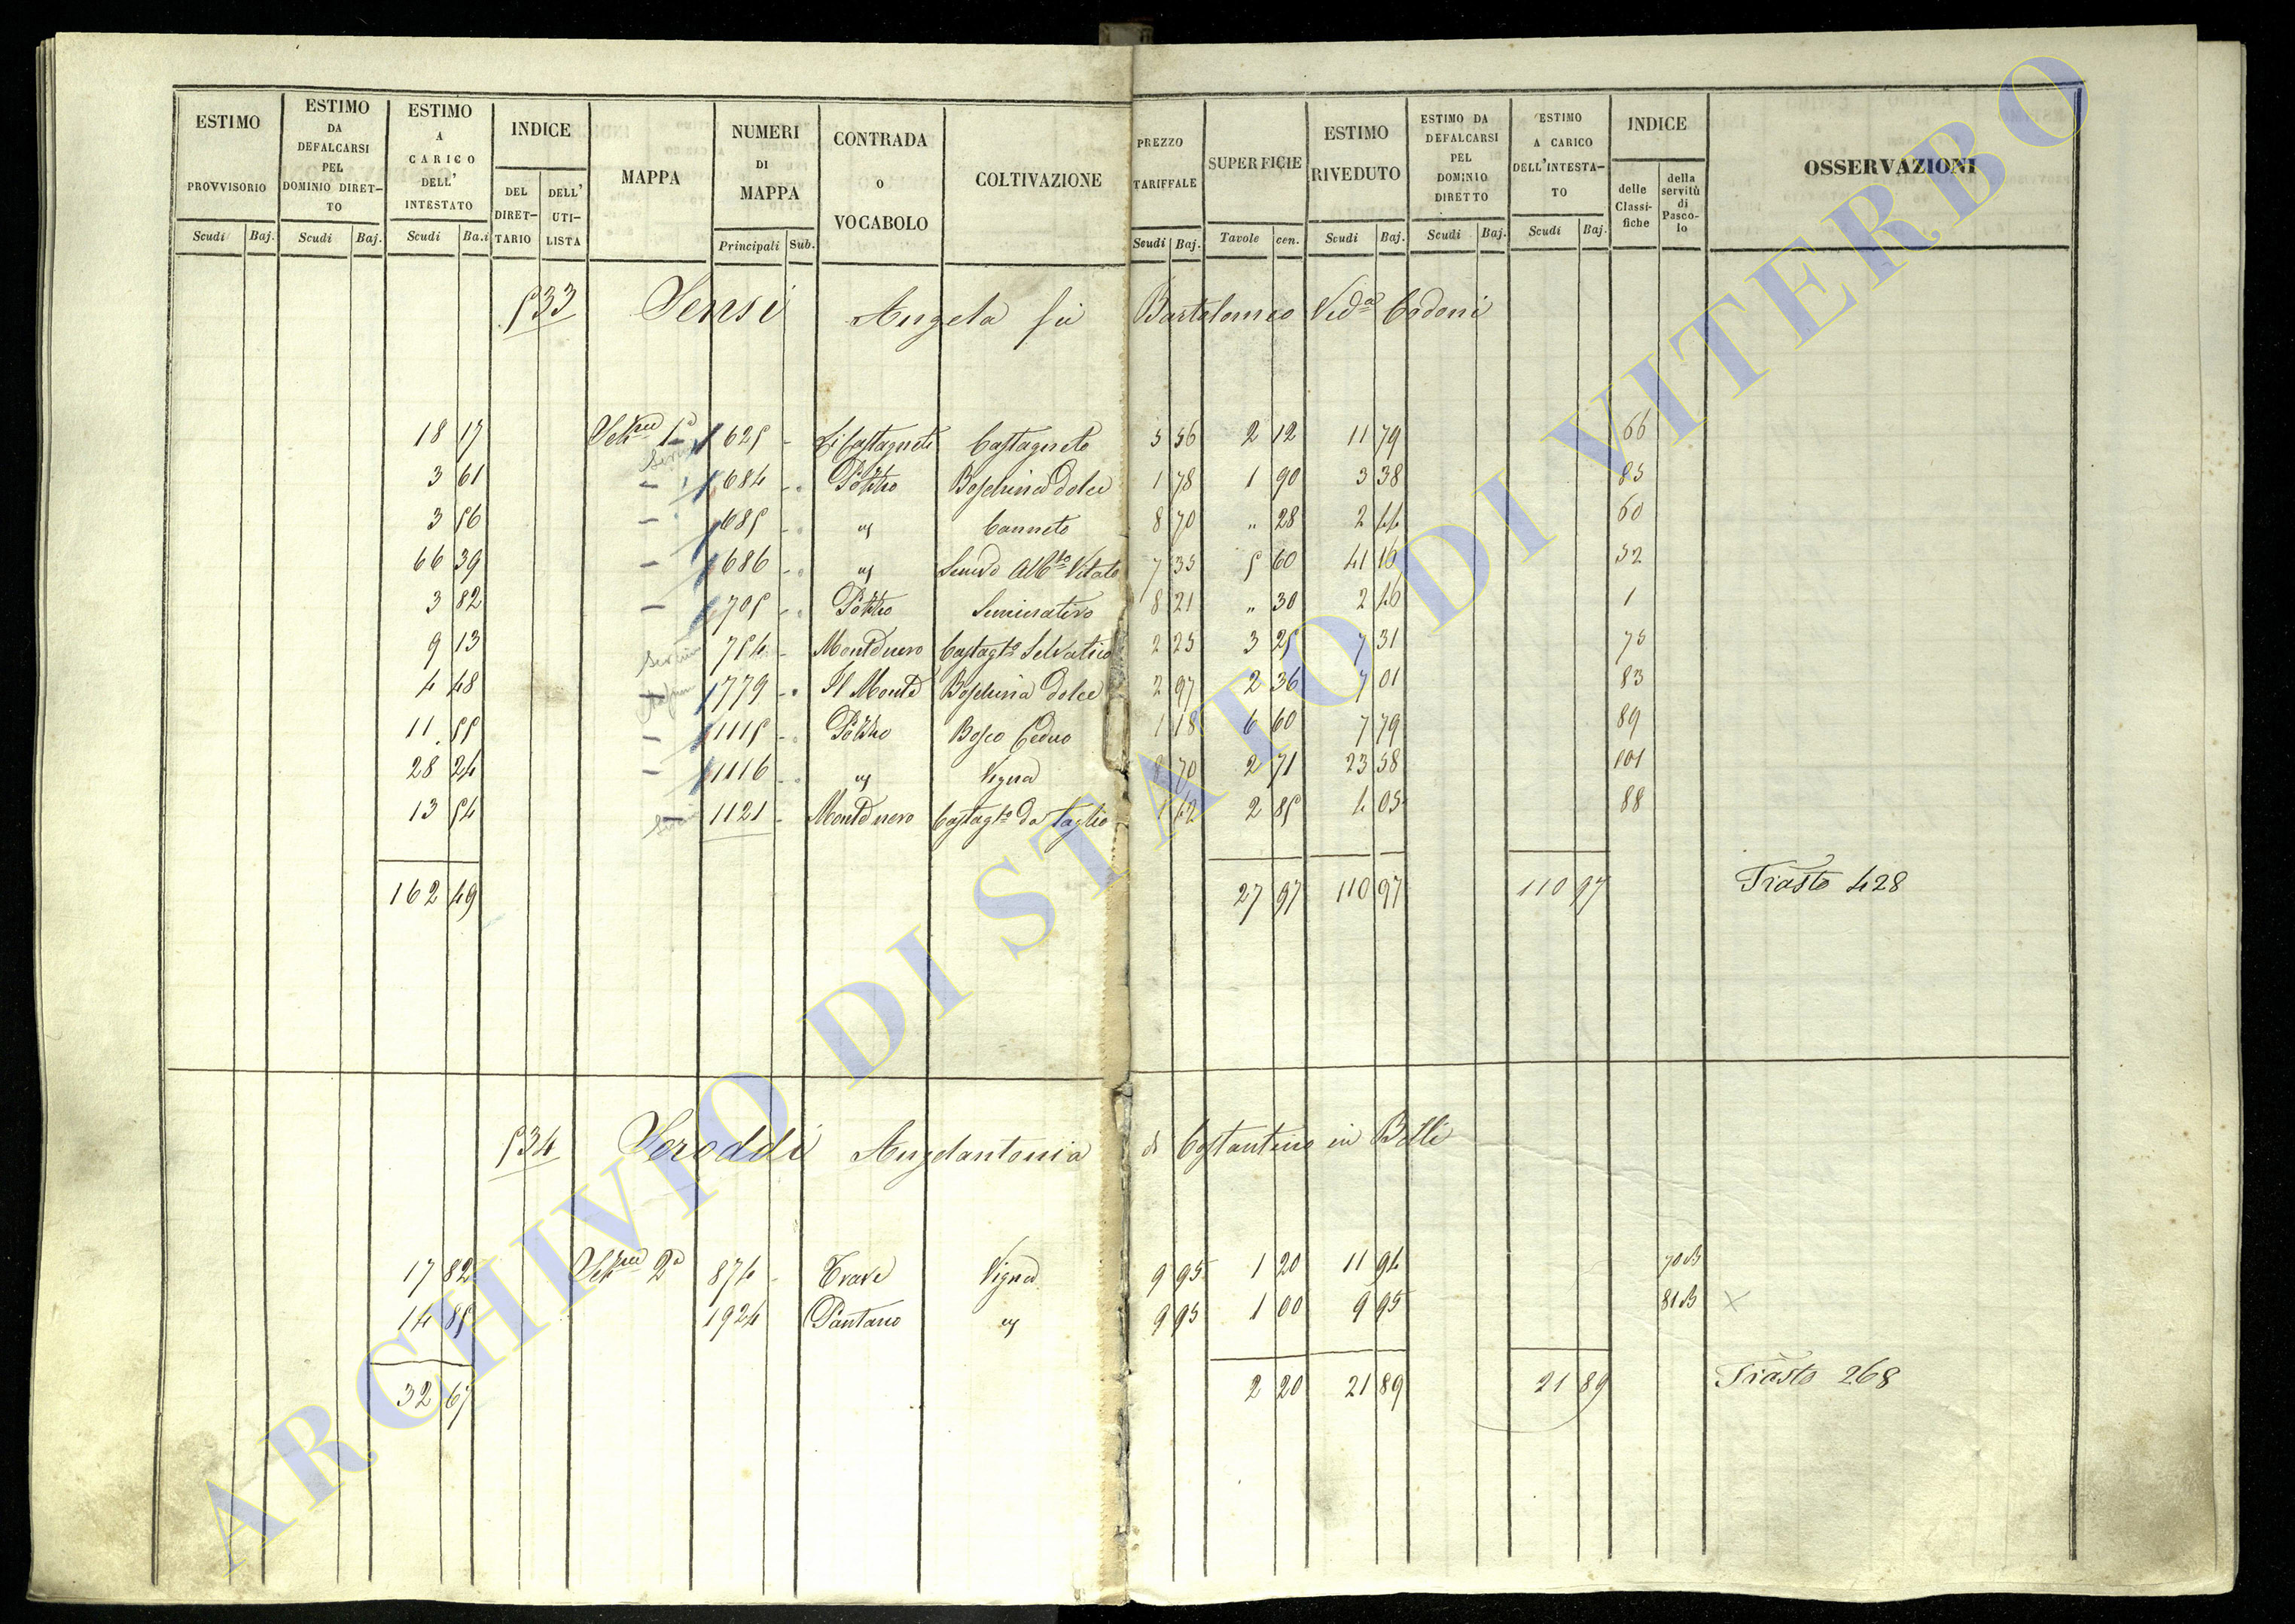 ESTIMO PROVVISORIO | ESTIMO DA DEFALCARSI PEL DOMINIO DIRETTO | ESTIMO A CARICO DELL' INTESTATO | INDICE DEL DIRETTARIO | DELL' UTILISTA | MAPPA | NUMERI DI MAPPA | CONTRADA O VOCABOLO | COLTIVAZIONE | PREZZO TARIFFALE | SUPERFICIE | ESTIMO RIVEDUTO | ESTIMO DA DEFALCARSI PEL DOMINIO DIRETTO | ESTIMO A CARICO DELL'INTESTATO | INDICE delle Classifiche | della servitù di Pascolo | OSSERVAZIONI
Scudi | Baj. | Scudi | Baj. | Scudi | Ba.i | Principali | Sub. | Scudi | Baj. | Tavole | cen. | Scudi | Baj. | Scudi | Baj. | Scudi | Baj.
533 Sensi Angela fù Bartolomeo Ved.a Cadoni
18 17 | Sez.ne 1a | 625 - | Li Castagneti | Castagneto | 5 56 | 2 12 | 11 79 | 66
3 61 | - | 684 | Pozzo | Boschina dolce | 1 78 | 1 90 | 3 38 | 85
3 56 | - | 685 | " | Canneto | 8 70 | " 28 | 2 44 | 60
66 39 | - | 686 | " | Semivo Alb.to Vitato | 7 35 | 5 60 | 41 16 | 52
3 82 | - | 705 | Pozzo | Seminativo | 8 21 | " 30 | 2 46 | 1
9 13 | 754 - | Montenero | Castag.to Selvatico | 2 25 | 3 25 | 7 31 | 75
4 48 | - | 779 | Il Monte | Boschina dolce | 2 97 | 2 36 | 7 01 | 83
11 55 | - | 1115 | Pozzo | Bosco Ceduo | 1 18 | 6 60 | 7 79 | 89
28 24 | - | 1116 | " | Vigna | 8 70 | 2 71 | 23 58 | 101
13 54 | 1121 - | Montenero | Castag.to da taglio | 1 42 | 2 85 | 4 05 | 88
162 49 | 27 97 | 110 97 | 110 97 | Triasto 428
534 Seroddi Angelantonia di Costantino in Belli
17 82 | Sez.ne 2a | 874 - | Trave | Vigna | 9 95 | 1 20 | 11 94 | 70B
14 85 | 1924 | Pantano | " | 9 95 | 1 00 | 9 95 | 81B | X
32 67 | 2 20 | 21 89 | 21 89 | Triasto 268
ARCHIVIO DI STATO DI VITERBO